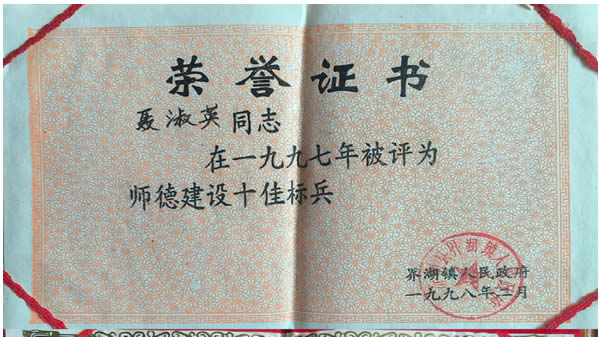 荣誉证书
聂淑英同志
在一九九七年被评为
师德建设十佳标兵
县界湖镇人民政府
界湖镇人民政府
一九九八年二月